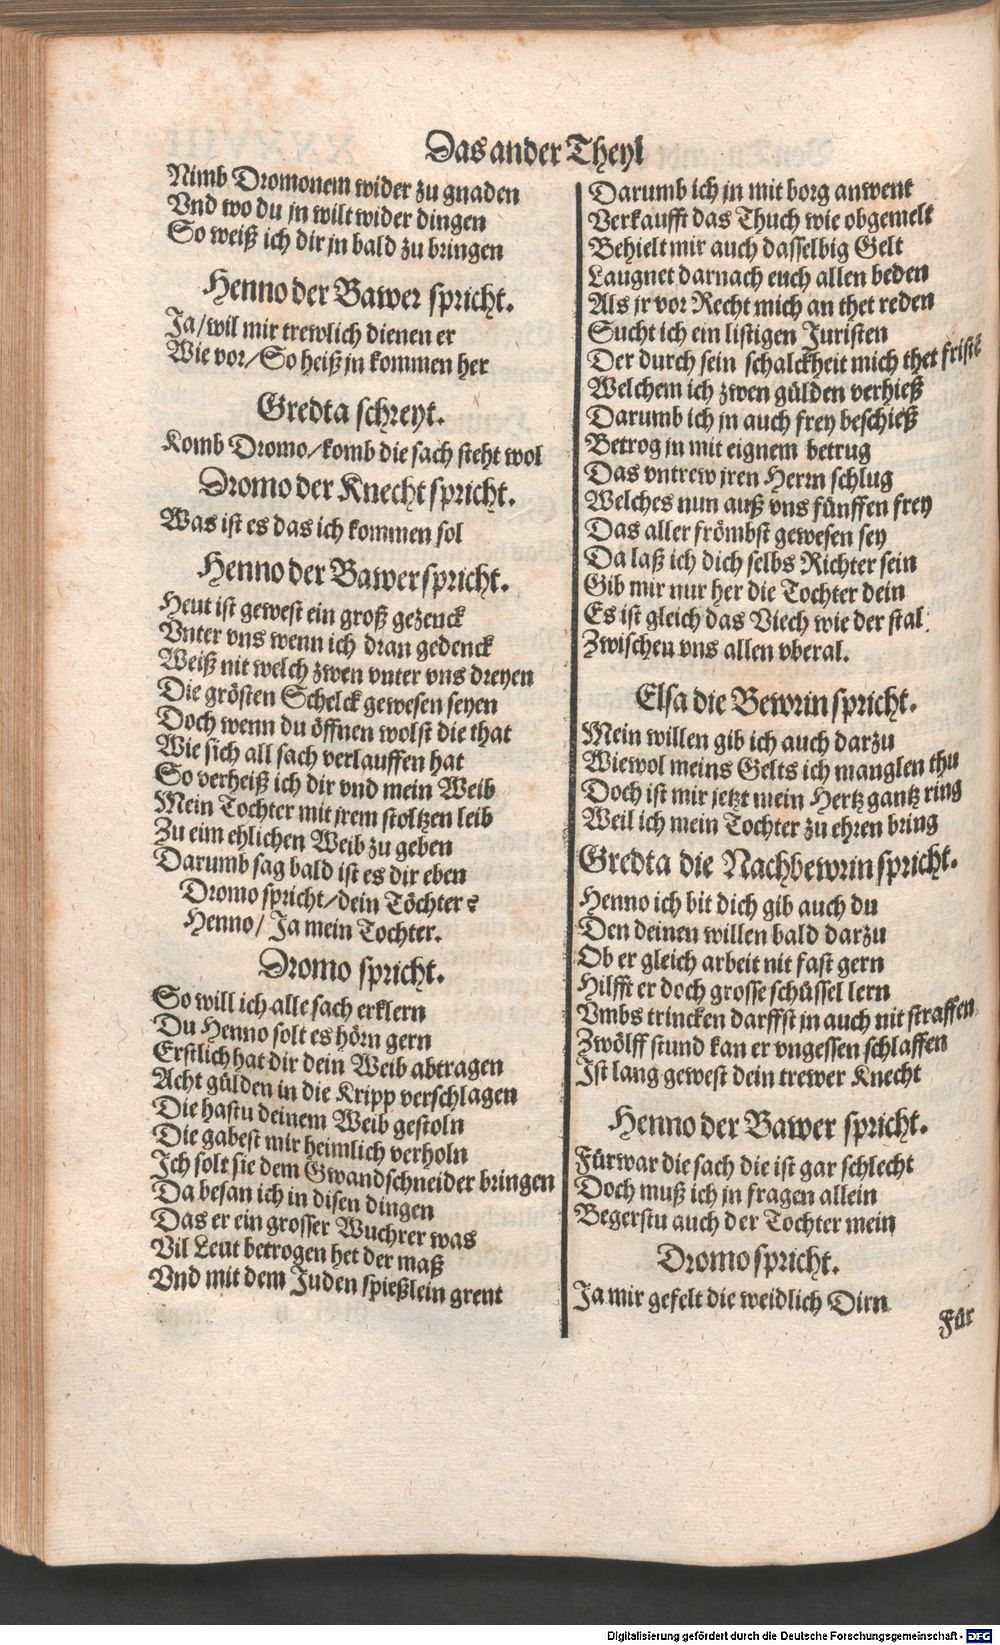 Das ander Theyl
Nimb Dromonem wider zu gnaden
Vnd wo du jn wilt wider dingen
So weiß ich dir jn bald zu bringen
Henno der Bawer spricht.
Ja/wil mir trewlich dienen er
Wie vor/So heiß jn kommen her
Gredta schreyt.
Komb Dromo/komb die sach steht wol
Dromo der Knecht spricht.
Was ist es das ich kommen sol
Henno der Bawer spricht.
Heut ist gewest ein groß gezenck
Vnter vns wenn ich dran gedenck
Weiß nit welch zwen vnter vns dreyen
Die grösten Schelck gewesen seyen
Doch wenn du öffnen wolst die that
Wie sich all sach verlauffen hat
So verheiß ich dir vnd mein Weib
Mein Tochter mit jrem stoltzen leib
Zu eim ehlichen Weib zu geben
Darumb sag bald ist es dir eben
Dromo spricht/dein Töchter?
Henno/ Ja mein Tochter.
Dromo spricht.
So will ich alle sach erklern
Du Henno solt es hörn gern
Erstlich hat dir dein Weib abtragen
Acht gülden in die Kripp verschlagen
Die hastu deinem Weib gestoln
Die gabest mir heimlich verholn
Ich solt sie dem Gwandschneider bringen
Da besan ich in disen dingen
Das er ein grosser Wuchrer was
Vil Leut betrogen het der maß
Vnd mit dem Juden spießlein grent
Darumb ich jn mit borg anwent
Verkaufft das Thuch wie obgemelt
Behielt mir auch dasselbig Gelt
Laugnet darnach euch allen beden
Als jr vor Recht mich an thet reden
Sucht ich ein listigen Juristen
Der durch sein schalckheit mich thet fristē
Welchem ich zwen gülden verhieß
Darumb ich jn auch frey beschieß
Betrog jn mit eignem betrug
Das vntrew jren Herrn schlug
Welches nun auß vns fünffen frey
Das aller frömbst gewesen sey
Da laß ich dich selbs Richter sein
Gib mir nur her die Tochter dein
Es ist gleich das Viech wie der stal
Zwischen vns allen vberal.
Elsa die Bewrin spricht.
Mein willen gib ich auch darzu
Wiewol meins Gelts ich manglen thu
Doch ist mir jetzt mein Hertz gantz ring
Weil ich mein Tochter zu ehren bring
Gredta die Nachbewrin spricht.
Henno ich bit dich gib auch du
Den deinen willen bald darzu
Ob er gleich arbeit nit fast gern
Hilfft er doch grosse schüssel lern
Vmbs trincken darffst jn auch nit straffen
Zwölff stund kan er vngessen schlaffen
Ist lang gewest dein trewer Knecht
Henno der Bawer spricht.
Fürwar die sach die ist gar schlecht
Doch muß ich jn fragen allein
Begerstu auch der Tochter mein
Dromo spricht.
Ja mir gefelt die weidlich Dirn
Für
Digitalisierung gefördert durch die Deutsche Forschungsgemeinschaft - DFG